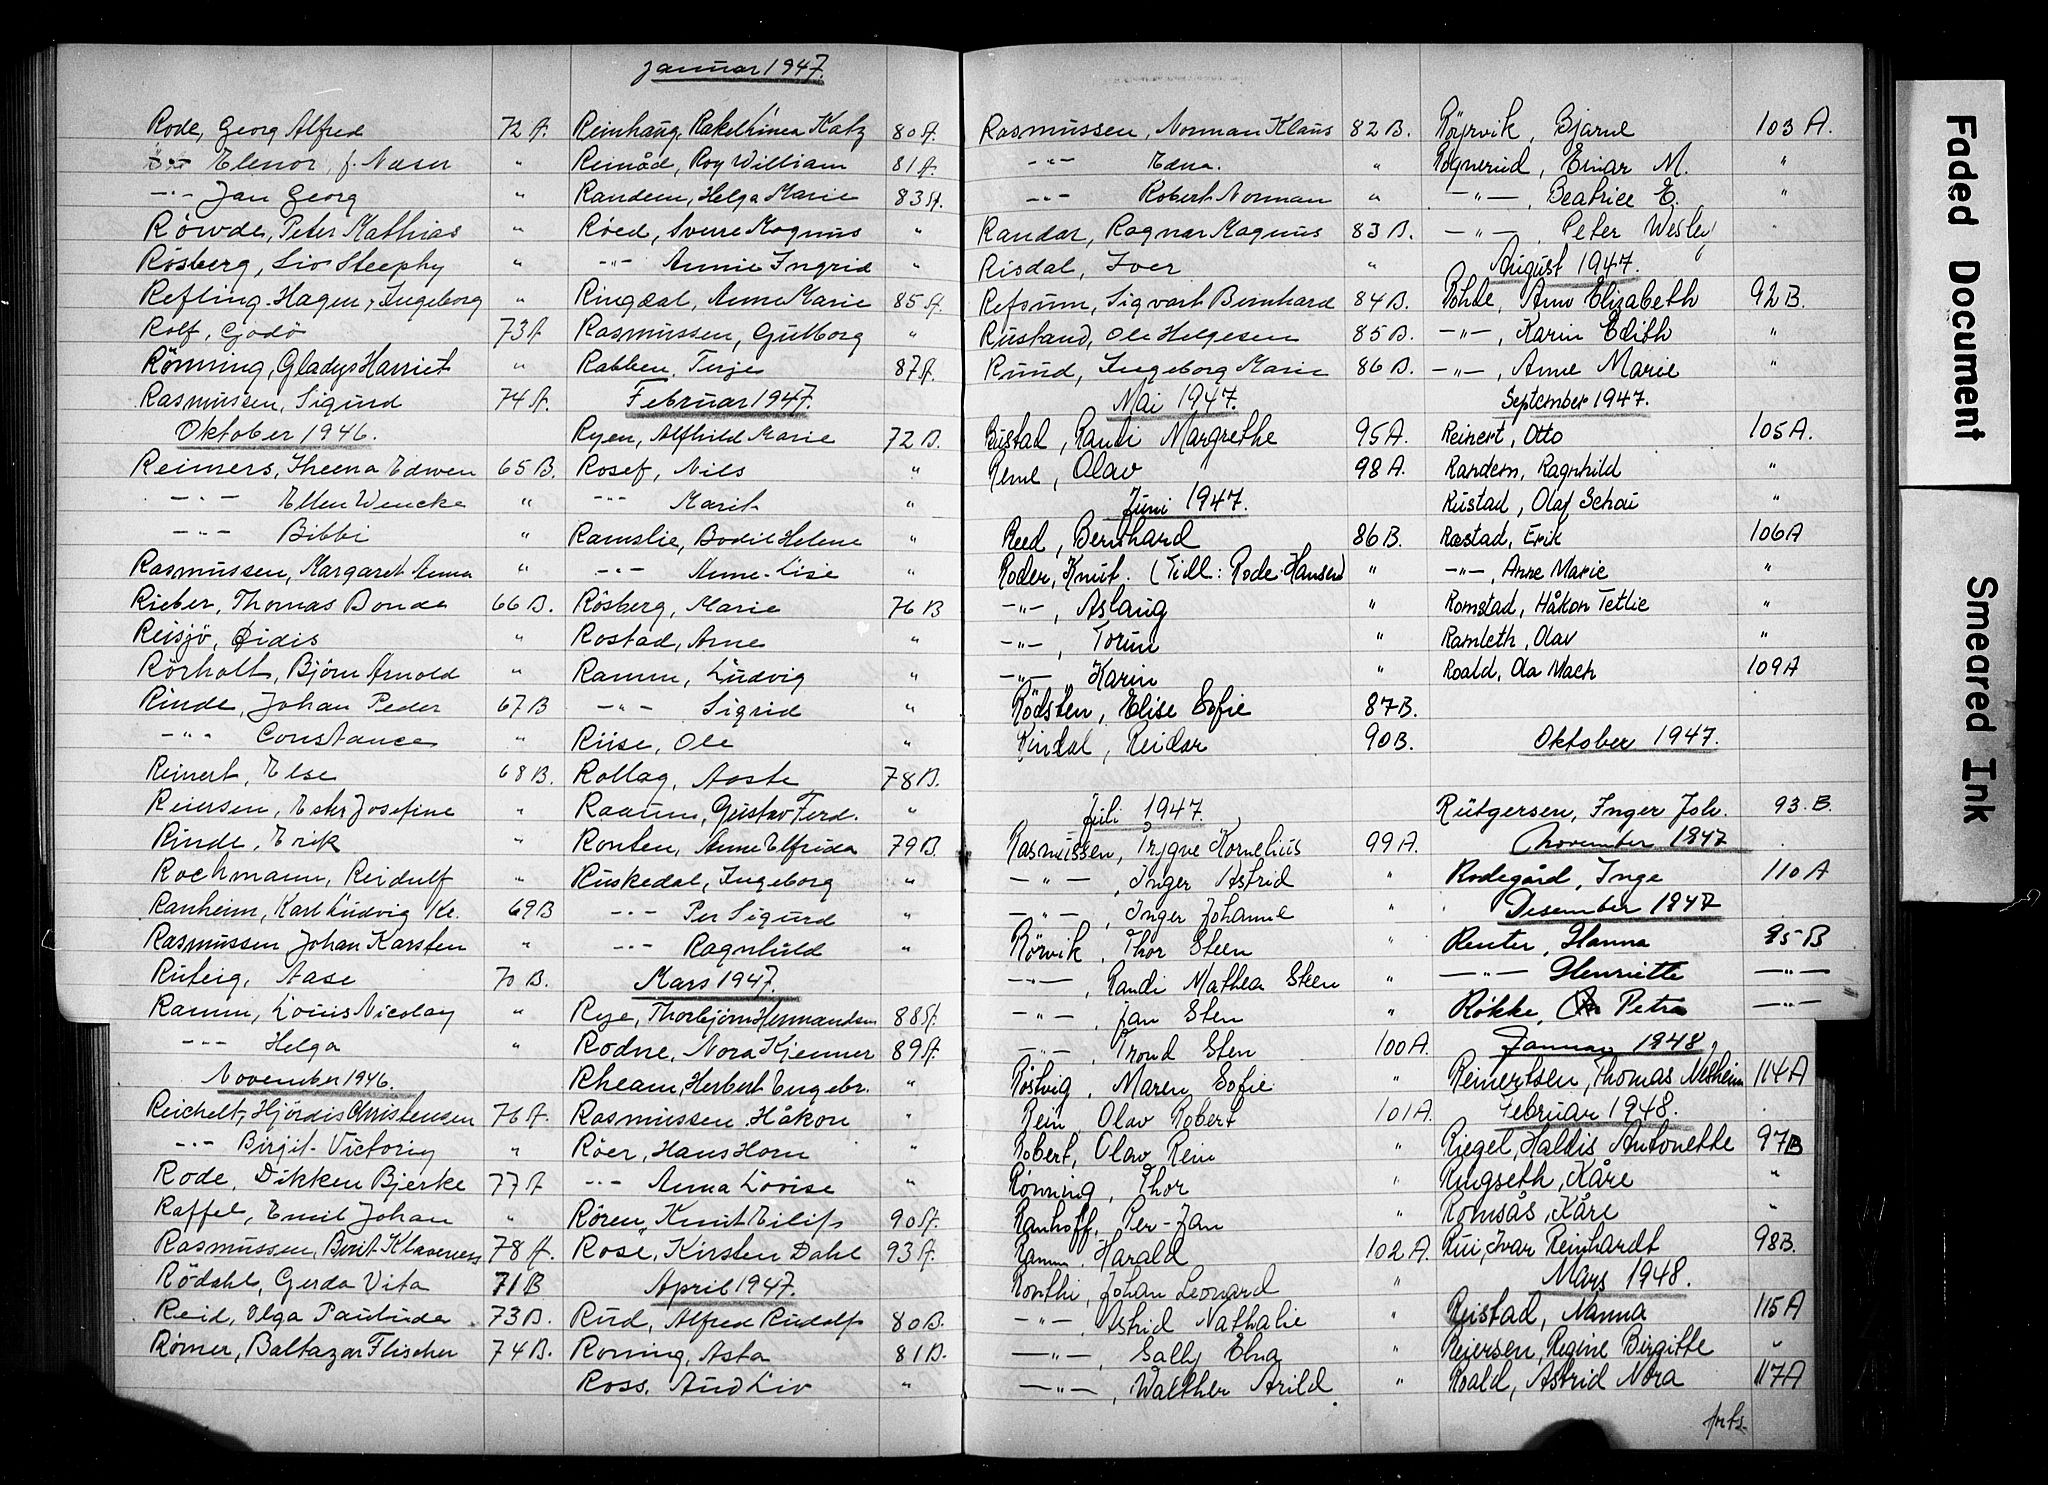 Rode, Georg Alfred 72 A.
-"- Elenor, f. Næser "
-"- Jan Georg "
Røwde, Peter Mathias "
Røsberg, Liv Steephy "
Refling-Hagen, Ingeborg "
Rolf, Godø 73 A
Rönning, Gladys Harriet "
Rasmussen, Sigurd 74 A.
Oktober 1946.
Reimers, Theena Edwen 65 B.
-"- Ellen Wencke "
-"- Bibbi "
Rasmussen, Margaret Anna "
Rieber, Thomas Bonde 66 B.
Reisjö, Didis "
Rörholt, Björn Arnold "
Rinde, Johan Peder 67 B
-"- Constance "
Reinert, Else 68 B.
Reiersen, Ester Josefine "
Rinde, Erik "
Rochmann, Reidulf "
Ranheim, Karl Ludvig Kr. 69 B
Rasmussen Johan Karsten "
Ruteig, Aase 70 B.
Ramm, Louis Nicolay "
-"- Helga "
November 1946.
Reichelt, Hjördis Christensen 76 A.
-"- Birgit-Victoria "
Rode, Dikken Bjerke 77 A
Raffel, Emil Johan "
Rasmussen, Berit Klaveness 78 A.
Rödahl, Gerda Vita 71 B
Reid, Olga Paulinda 73 B.
Rømer, Baltazar Flischer 74 B.
Januar 1947.
Reinhaug, Rakel Linea Katz 80 A.
Remåd, Roy William 81 A.
Randem, Helga Marie 83 A.
Røed, Sverre Magnus "
-"- Annie Ingrid "
Ringdal, Anne Marie 85 A.
Rasmussen, Gulborg "
Rabben, Terje 87 A.
Februar 1947.
Ryen, Alfhild Marie 72 B.
Rosef, Nils "
-"- Marit "
Ramslie, Bodil Helene "
-"- Anne-Lise "
Rösberg, Marie 76 B
Rostad, Arne "
Ramm, Ludvig "
-"- Sigrid "
Riise, Ole "
Rollag, Aaste 78 B.
Raaum, Gustav Ferd. "
Ronten, Anne Elfrida 79 B.
Ruskedal, Ingeborg "
-"- Per Sigurd "
-"- Ragnhild "
Mars 1947.
Rye, Thorbjørn Hermandsen 88 A.
Rodne, Nora Kjenner 89 A.
Rheam, Herbert Engebr. "
Rasmussen Håkon "
Röer, Hans Horn "
-"- Anna Lovise "
Røren, Knut Eilif 90 A.
Rose, Kirsten Dahl 93 A.
April 1947.
Rud, Alfred Rudolf 80 B.
Roning, Asta 81 B.
Ross. Aud Liv "
Rasmussen, Norman Klaus 82 B.
-"- Edna. "
-"- Robert Norman "
Randar, Ragnar Magnus 83 B.
Risdal, Iver "
Refsum, Sigvart Bernhard 84 B.
Rustand, Ole Helgesen 85 B.
Rund, Ingeborg Marie 86 B.
Mai 1947.
Rustad, Randi Margrethe 95 A.
Reme, Olav 98 A.
Juni 1947.
Reed, Bernhard 86 B.
Roder, Knut. (Tidl: Rode-Hansen) "
-"-, Aslaug "
-"-, Torun "
-"- Karin "
Rödsten, Elise Sofie 87 B.
Rindal, Reidar 90 B.
Juli 1947.
Rasmussen, Trygve Kornelius 99 A.
-"-, Inger Astrid "
-"-, Inger Johanne "
Rörvik, Thor Steen "
-"-, Randi Mathea Steen "
-"-, Jan Sten "
-"-, Trond Sten 100 A.
Röstvig, Maren Sofie "
Rein, Olav Robert 101 A.
Robert, Olav Rein "
Rønning, Thor "
Ranhoff, Per-Jan "
Ramm, Harald 102 A.
Ronthi, Johan Leonard "
-"-, Astrid Nathalie "
-"-, Sally Elna "
-"-, Walther Arild "
Röyrvik, Bjarne 103 A.
Rognerud, Einar M. "
-"-, Beatrice E. "
-"-, Peter Wesley "
August 1947.
Rohde, Ann Elizabeth 92 B.
-"-, Karin Edith "
-"-, Anne Marie "
September 1947.
Reinert, Otto 105 A.
Randem, Ragnhild "
Rustad, Olaf Schou "
Rastad, Erik 106 A
-"-, Anne Marie "
Romstad, Håkon Tetlie "
Ramleth, Olav "
Roald, Ola Mach 109 A
Oktober 1947.
Rütgersen, Inger Joh. 93. B.
November 1947
Rodegård, Inge 110 A
Desember 1947
Reuter, Hanna 95 B
-"- Henriette -"-
Røkke, Petra -"-
Januar 1948.
Reinertsen, Thomas Nesheim 114 A
Februar 1948.
Riegel, Haldis Antonette 97 B
Ringseth, Kåre "
Romsås, Kåre "
Rui, Ivar Reinhardt 98 B.
Mars 1948.
Reistad, Nanna 115 A
Reiersen, Regine Birgitte "
Roald, Astrid Nora 117 A
forts.
Faded Document
Smeared Ink